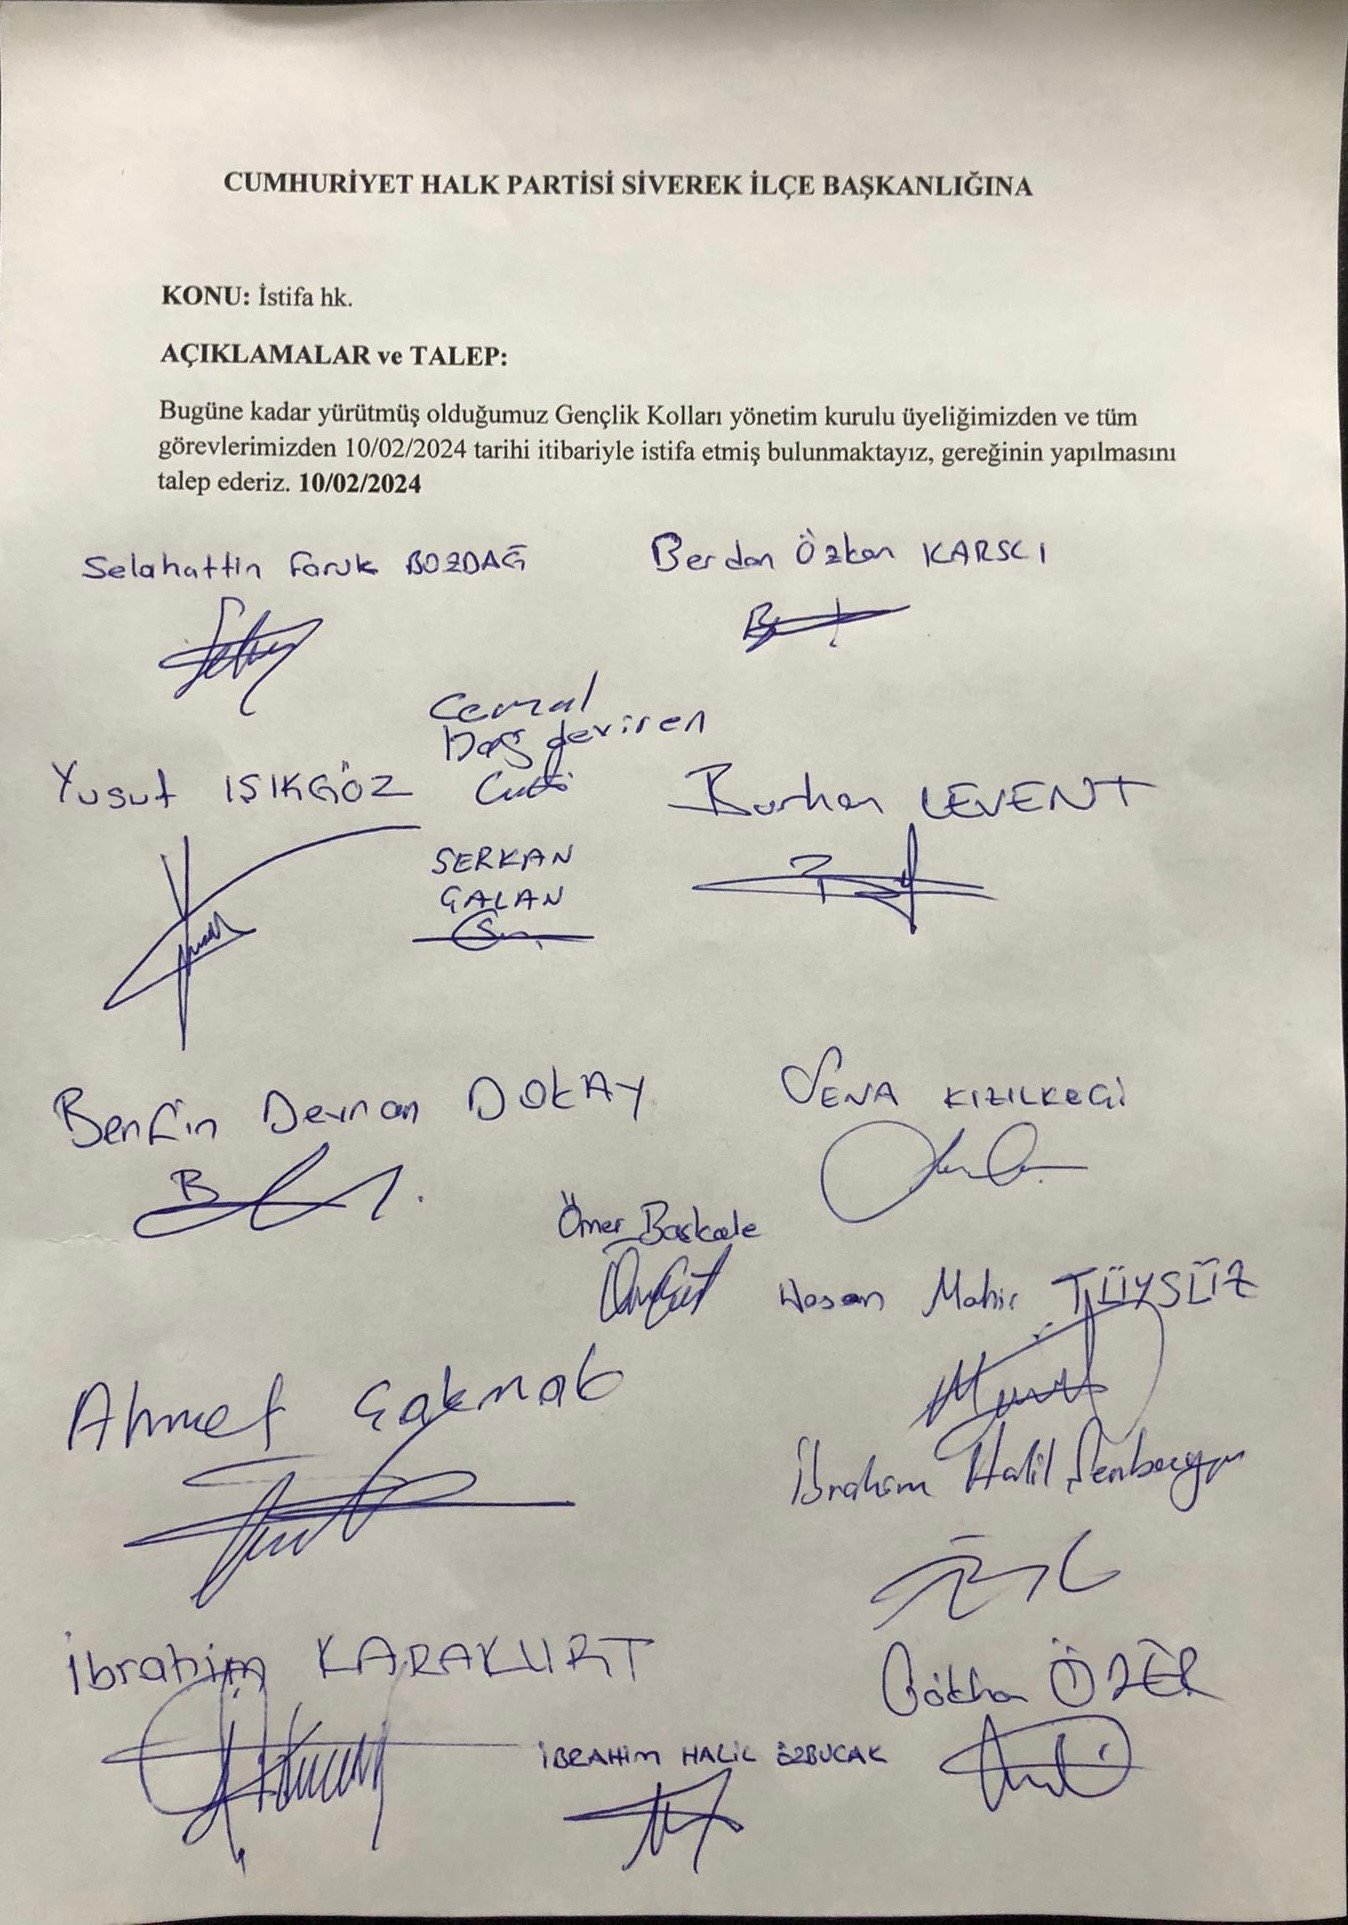 CUMHURİYET HALK PARTİSİ SİVEREK İLÇE BAŞKANLIĞINA
KONU: İstifa hk.
AÇIKLAMALAR ve TALEP:
Bugüne kadar yürütmüş olduğumuz Gençlik Kolları yönetim kurulu üyeliğimizden ve tüm
görevlerimizden 10/02/2024 tarihi itibariyle istifa etmiş bulunmaktayız, gereğinin yapılmasını
talep ederiz. 10/02/2024
Selahattin Faruk BOZDAĞ
Berdan Özkan KARSLI
Cemal
Başdeviren
Yusuf IŞIKGÖZ
Burhan LEVENT
SERKAN
ÇALAN
Berfin Devran DOKAY
SENA KIZILKEÇİ
Ömer Başkale
Hasan Mahir TÜYSÜZ
Ahmet Çakmak
İbrahim Halil
İbrahim KARAKURT
Gökhan ÖZER
İBRAHİM HALİL ÖZBUCAK